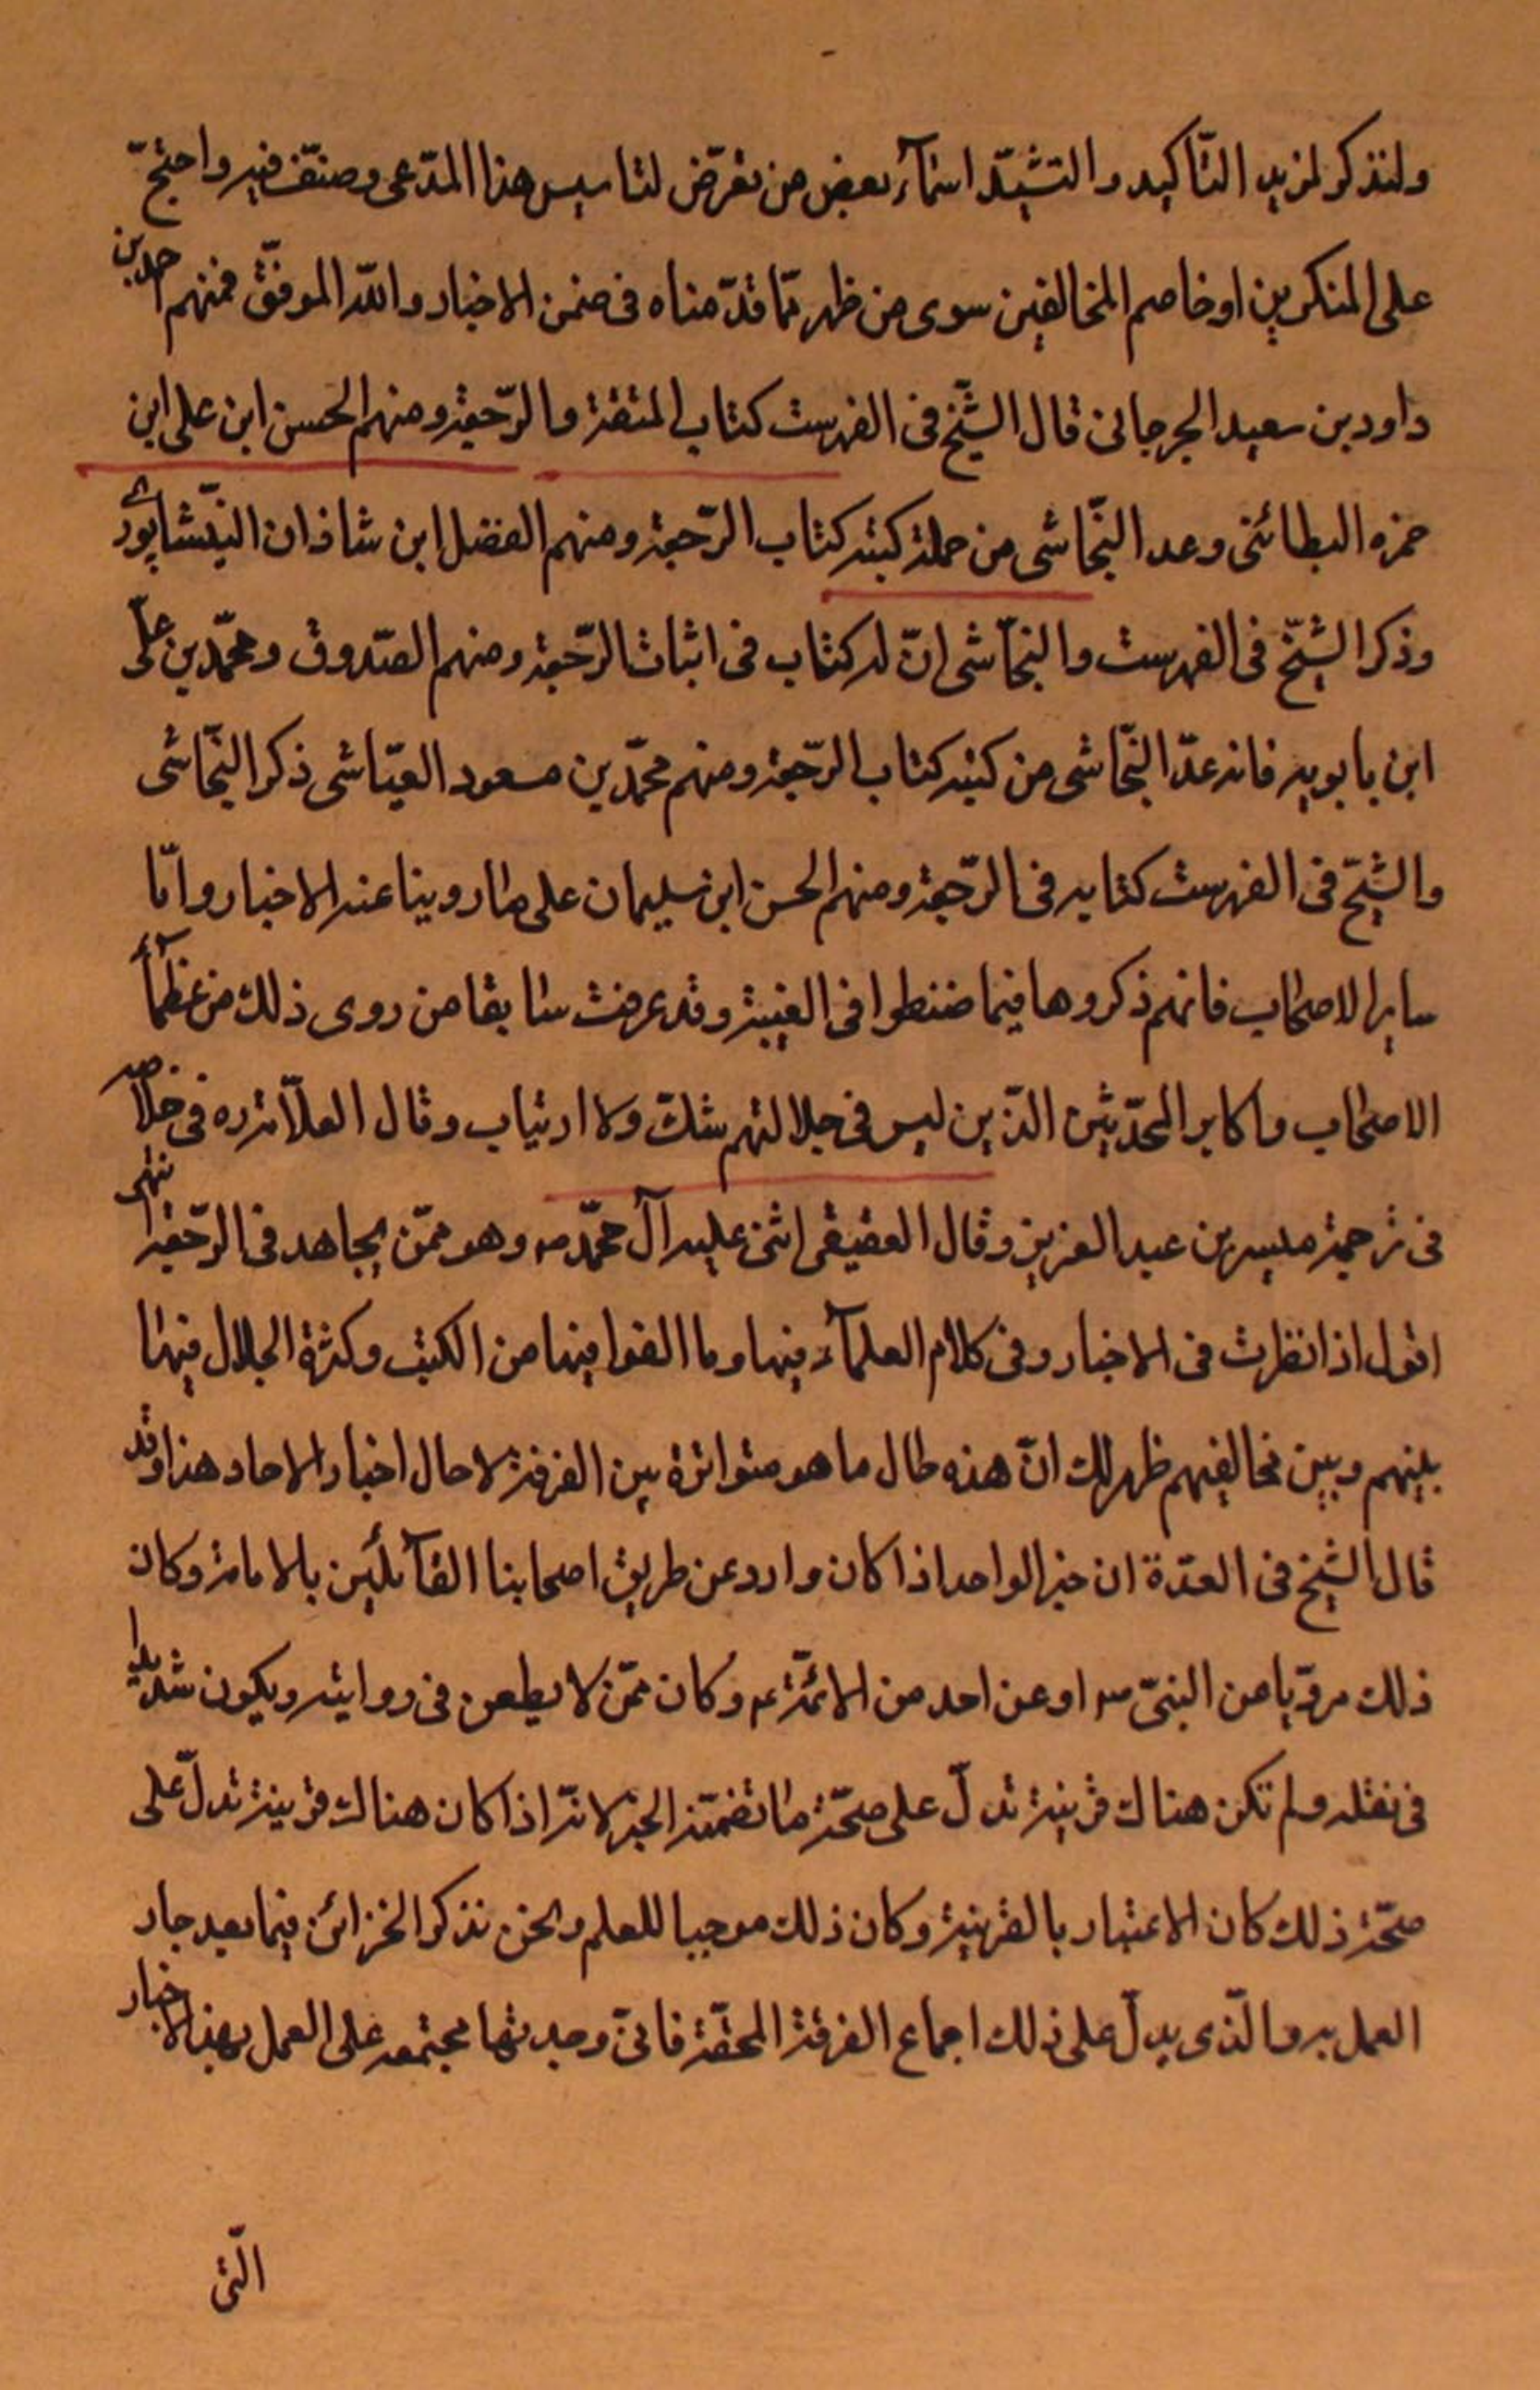 ولنذكر لمزيد التّاكيد والتشيّد اسمآء بعض من تعرّض لتاسيس هذا المدّعى وصنّف فيه واحتجّ
على المنكرين او خاصم المخالفين سوى من ظهر ممّا قدّمناه فى ضمن الاخبار والله الموفّق فمنهم احمد بن
داود بن سعيد الجرجانى قال الشّيخ فى الفهرست كتاب المتعة والرّجعة ومنهم الحسن ابن على ابن
حمزه البطائنى وعد النّجاشى من جملة كتبه كتاب الرّجعة ومنهم الفضل ابن شاذان النيّشابورى
وذكر الشّيخ فى الفهرست والنجّاشى انّ له كتاب فى اثبات الرّجعة ومنهم الصّدوق ومحمّد بن علىّ
ابن بابويه فانه عدّ النّجاشى من كتبه كتاب الرّجعة ومنهم محمّد بن مسعود العيّاشى ذكر النّجاشى
والشّيخ فى الفهرست كتابه فى الرّجعة ومنهم الحسن ابن سليمان على ما روينا عنه الاخبار وامّا
ساير الاصحاب فانهم ذكروها فيما ضنطوا فى الغيبة وقد عرفت سابقا من روى ذلك من عظمآء
الاصحاب واكابر المحدّثين الذّين ليس فى جلالتهم شكّ ولا ارتياب وقال العلاّمة ره فى خلاصه
فى ترجمة ميسر بن عبد العزيز وقال العقيقى اثنى عليه آل محمّد ص وهو ممّن يجاهد فى الرّجعة انتهى
اقول اذا نظرت فى الاخبار وفى كلام العلمآء فيها وما الفوا فيها من الكتب وكثرة الجدال فيها
بينهم وبين مخالفيهم ظهر لك انّ هذه حال ما هو متواترة بين الفرقة لا حال اخبار الاحاد هذا وقد
قال الشّيخ فى العدّة ان خبر الواحد اذا كان وارد عن طريق اصحابنا القآئلين بالامامة وكان
ذلك مرويّا عن النبىّ ص او عن احد من الائمّة ع وكان ممّن لا يطعن فى روايته ويكون شديدا
فى نقله ولم تكن هناك قرينة تدلّ على صحّة ما تضمّنه الخبر لانّه اذا كان هناك قرينة تدلّ على
صحّة ذلك كان الاعتبار بالقرينة وكان ذلك موجبا للعلم ونحن نذكر القرائن فيما بعد جاز
العمل به والّذى يدلّ على ذلك اجماع الفرقة المحقّة فانىّ وجدتها مجتمعه على العمل بهذا الاخبار
الّتى